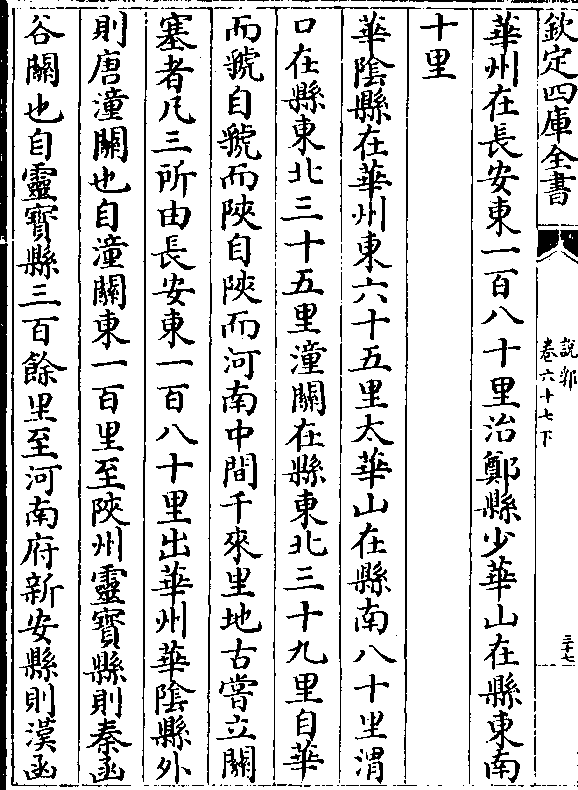 欽定四庫全書
說郛
卷六十七下
三十七
華州在長安東一百八十里治鄭縣少華山在縣東南
十里
華陰縣在華州東六十五里太華山在縣南八十里渭
口在縣東北三十五里潼關在縣東北三十九里自華
而虢自虢而陝自陝而河南中間千來里地古嘗立關
塞者凡三所由長安東一百八十里出華州華陰縣外
則唐潼關也自潼關東一百里至陝州靈寶縣則秦函
谷關也自靈寶縣三百餘里至河南府新安縣則漢函